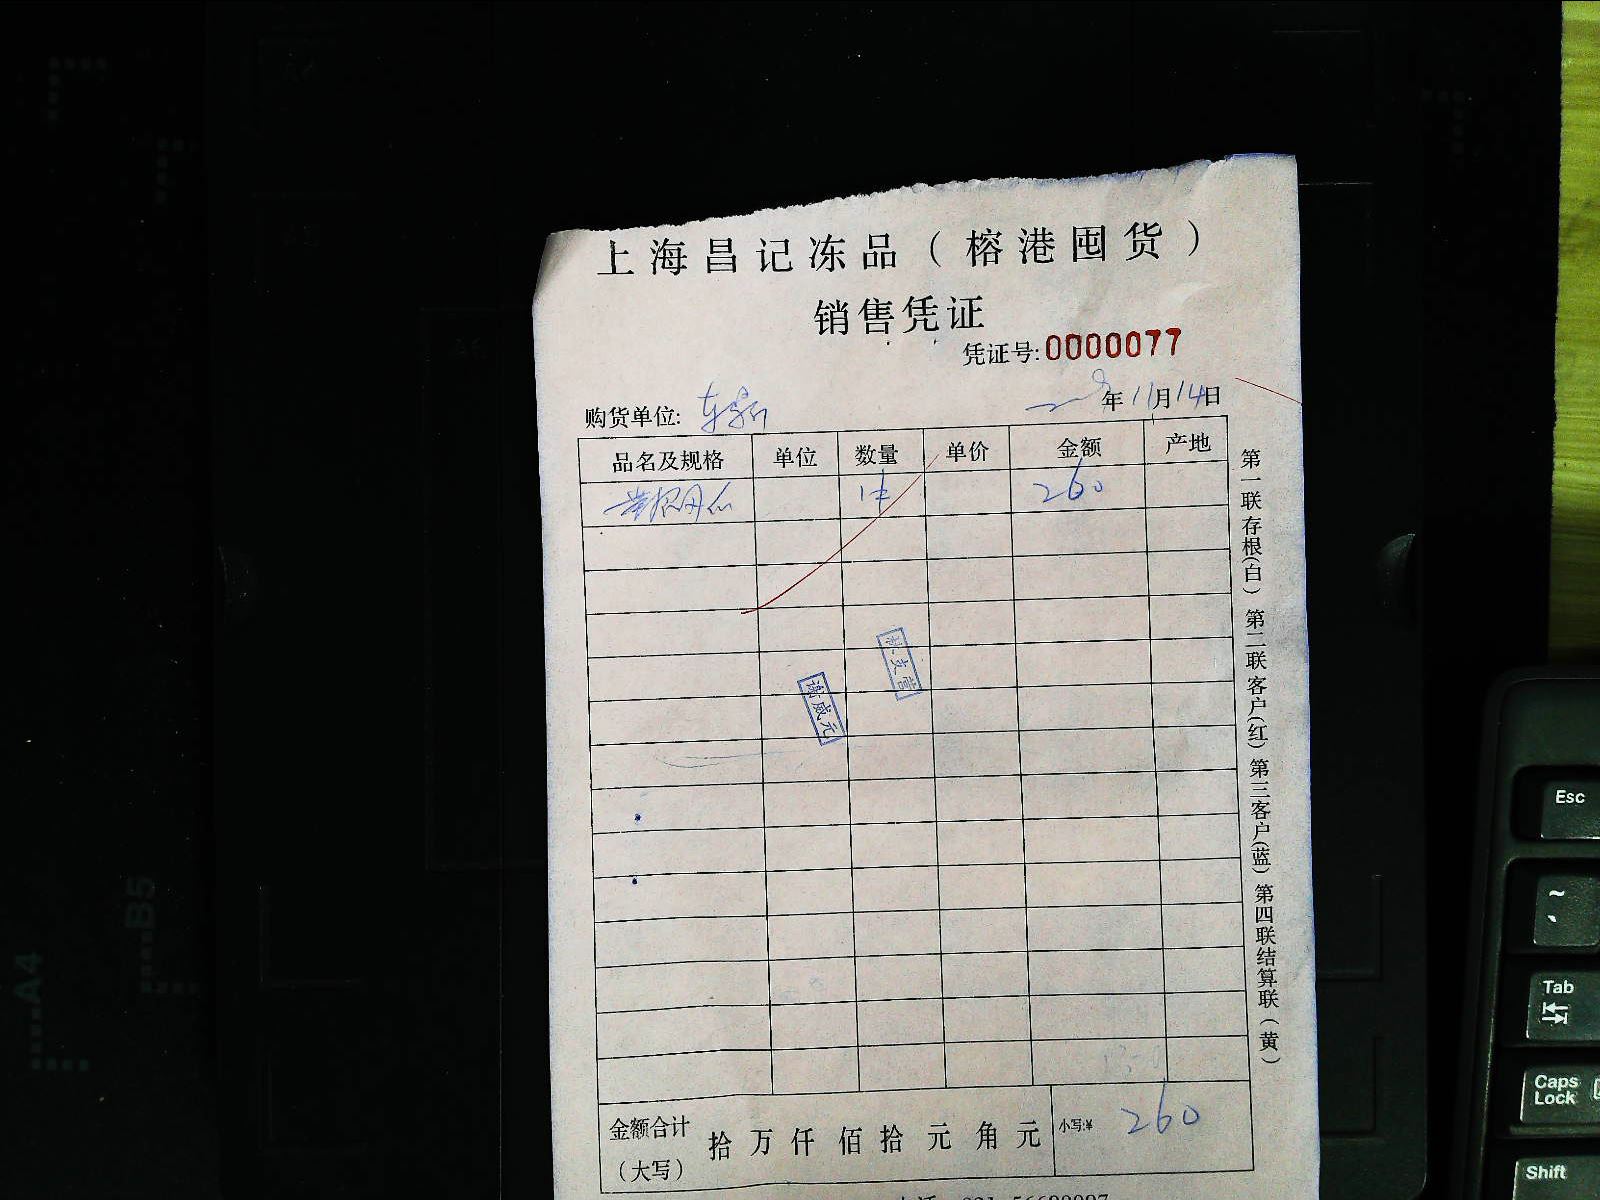 上海昌记冻品（榕港囤货）
销售凭证
凭证号:0000077
购货单位: 年11月14日
品名及规格 单位 数量 单价 金额 产地
1件 260
谢威元
金额合计（大写） 拾万仟佰拾元角元 小写:¥ 260
第一联存根(白) 第二联客户(红) 第三客户(蓝) 第四联结算联(黄)
A4
B5
Esc
~
Tab
Caps Lock
Shift